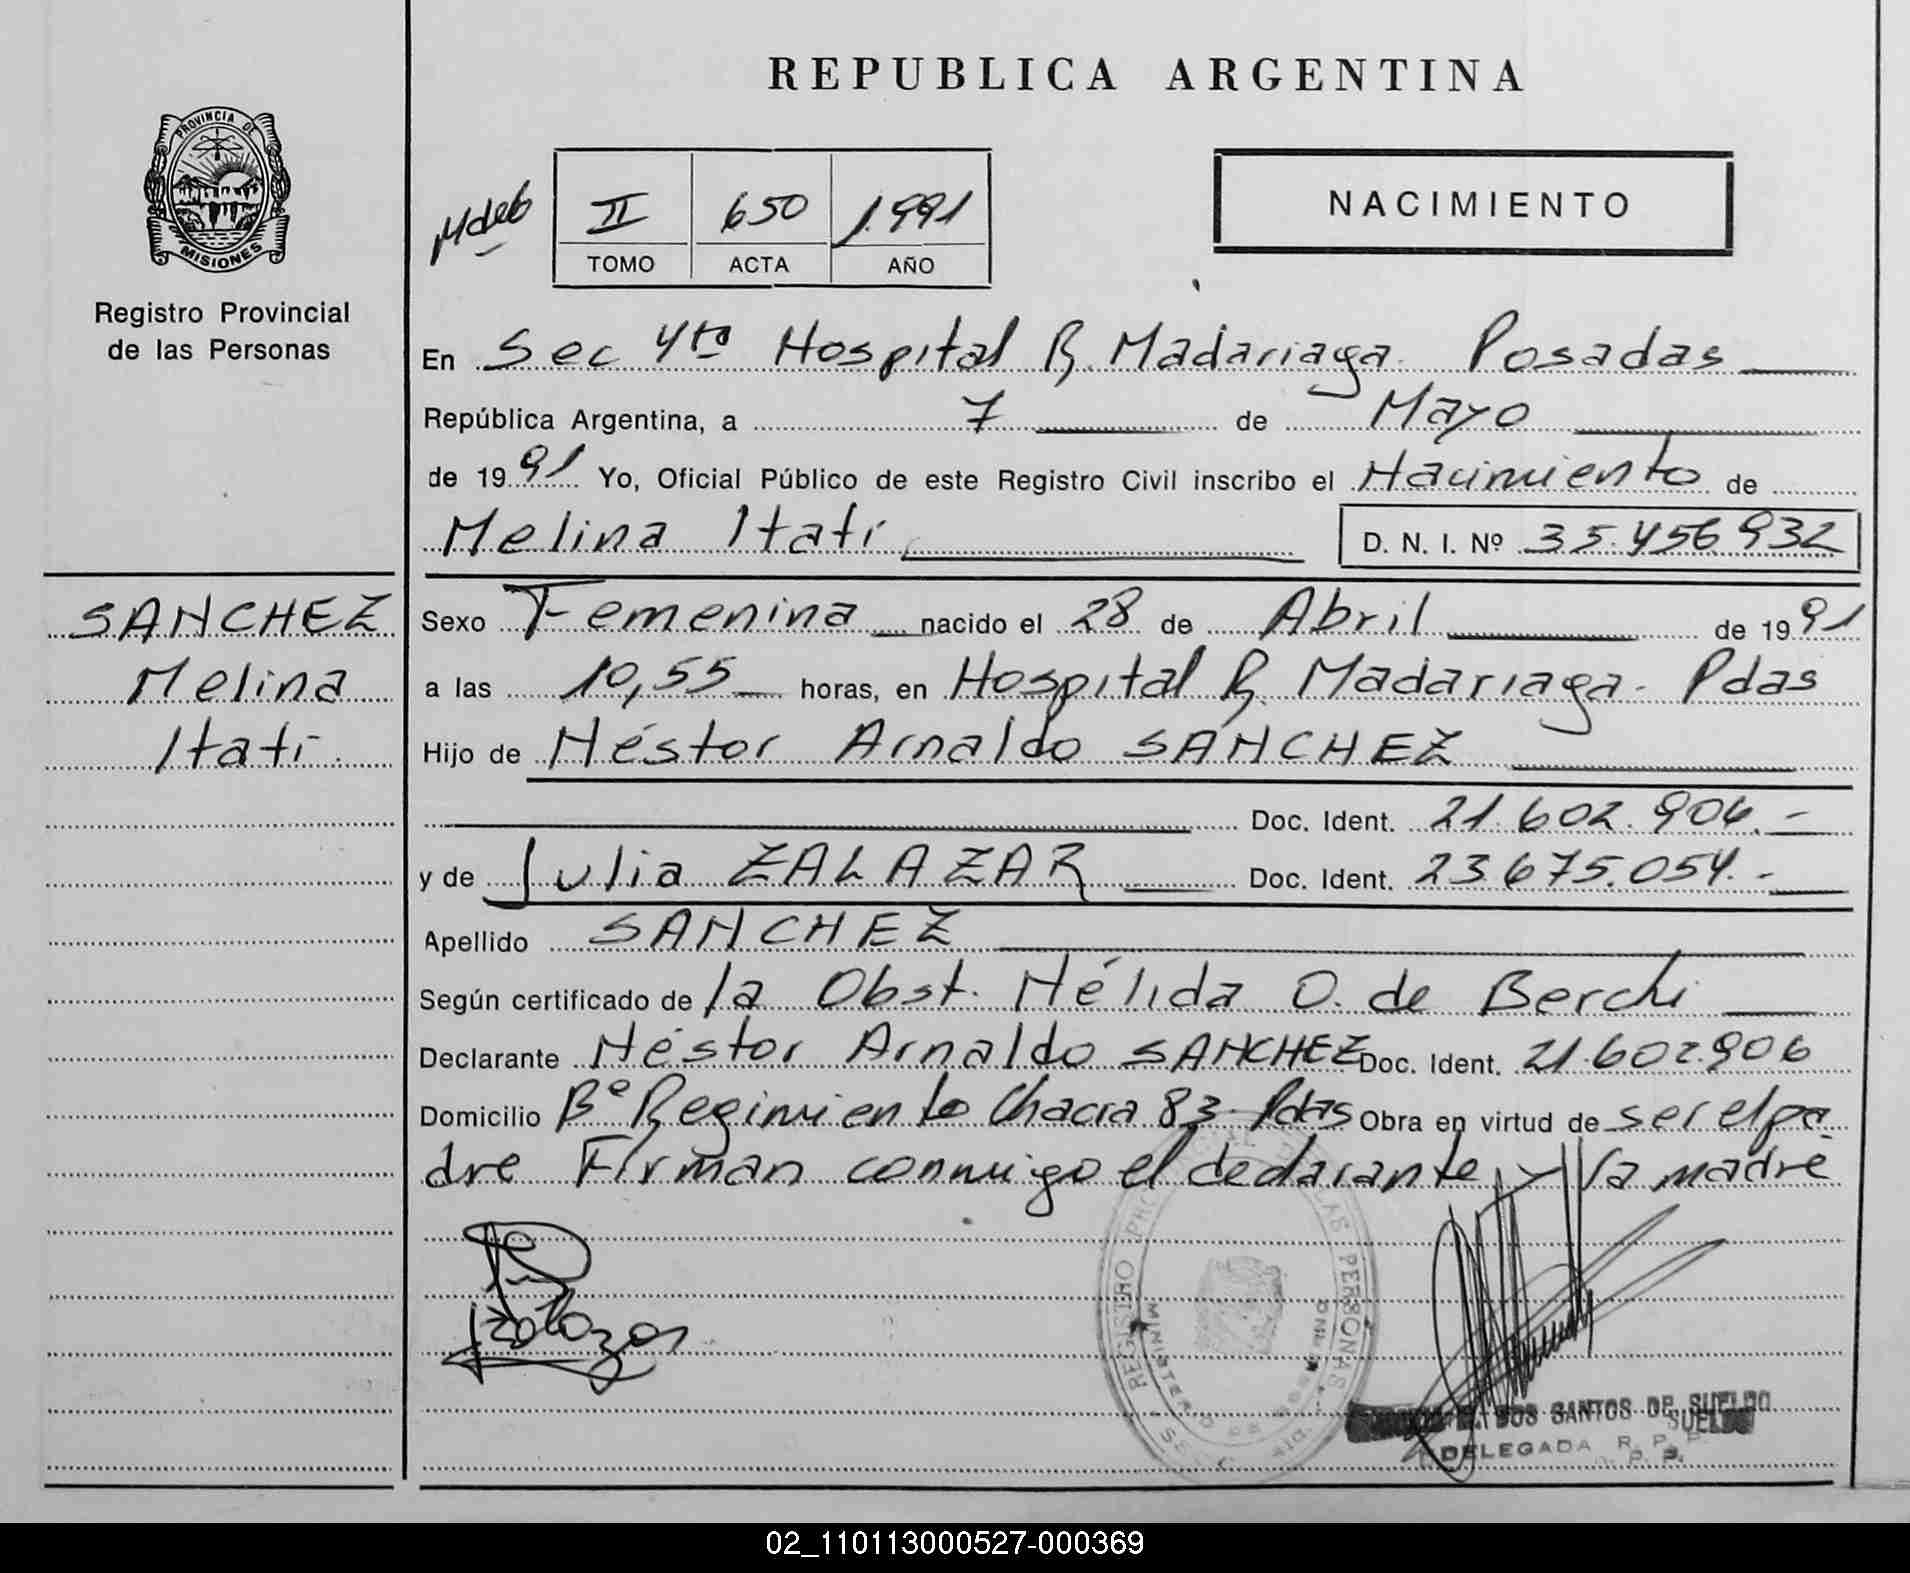 PROVINCIA DE
MISIONES
Registro Provincial
de las Personas
SANCHEZ
Melina
Itatí
REPUBLICA ARGENTINA
II 650 1.991
TOMO ACTA AÑO
NACIMIENTO
En Sec 4ta Hospital R. Madariaga. Posadas
República Argentina, a 7 de Mayo
de 1991 Yo, Oficial Público de este Registro Civil inscribo el Nacimiento de
Melina Itatí D. N. I. Nº 35.456.932
Sexo Femenina nacido el 28 de Abril de 1991
a las 10,55 horas, en Hospital R. Madariaga. Pdas
Hijo de Néstor Arnaldo SANCHEZ
Doc. Ident. 21.602.906.-
y de Julia ZALAZAR Doc. Ident. 23.675.054.-
Apellido SANCHEZ
Según certificado de la Obst. Nélida O. de Berchi
Declarante Néstor Arnaldo SANCHEZ Doc. Ident. 21.602.906
Domicilio Bº Regimiento Chacra 83 Pdas Obra en virtud de ser el pa
dre Firman conmigo el declarante y la madre
REGISTRO PROVINCIAL DE LAS PERSONAS
MINISTERIO DE GOBIERNO
DOS SANTOS DE SUELDO
DELEGADA R. P. P.
02_110113000527-000369